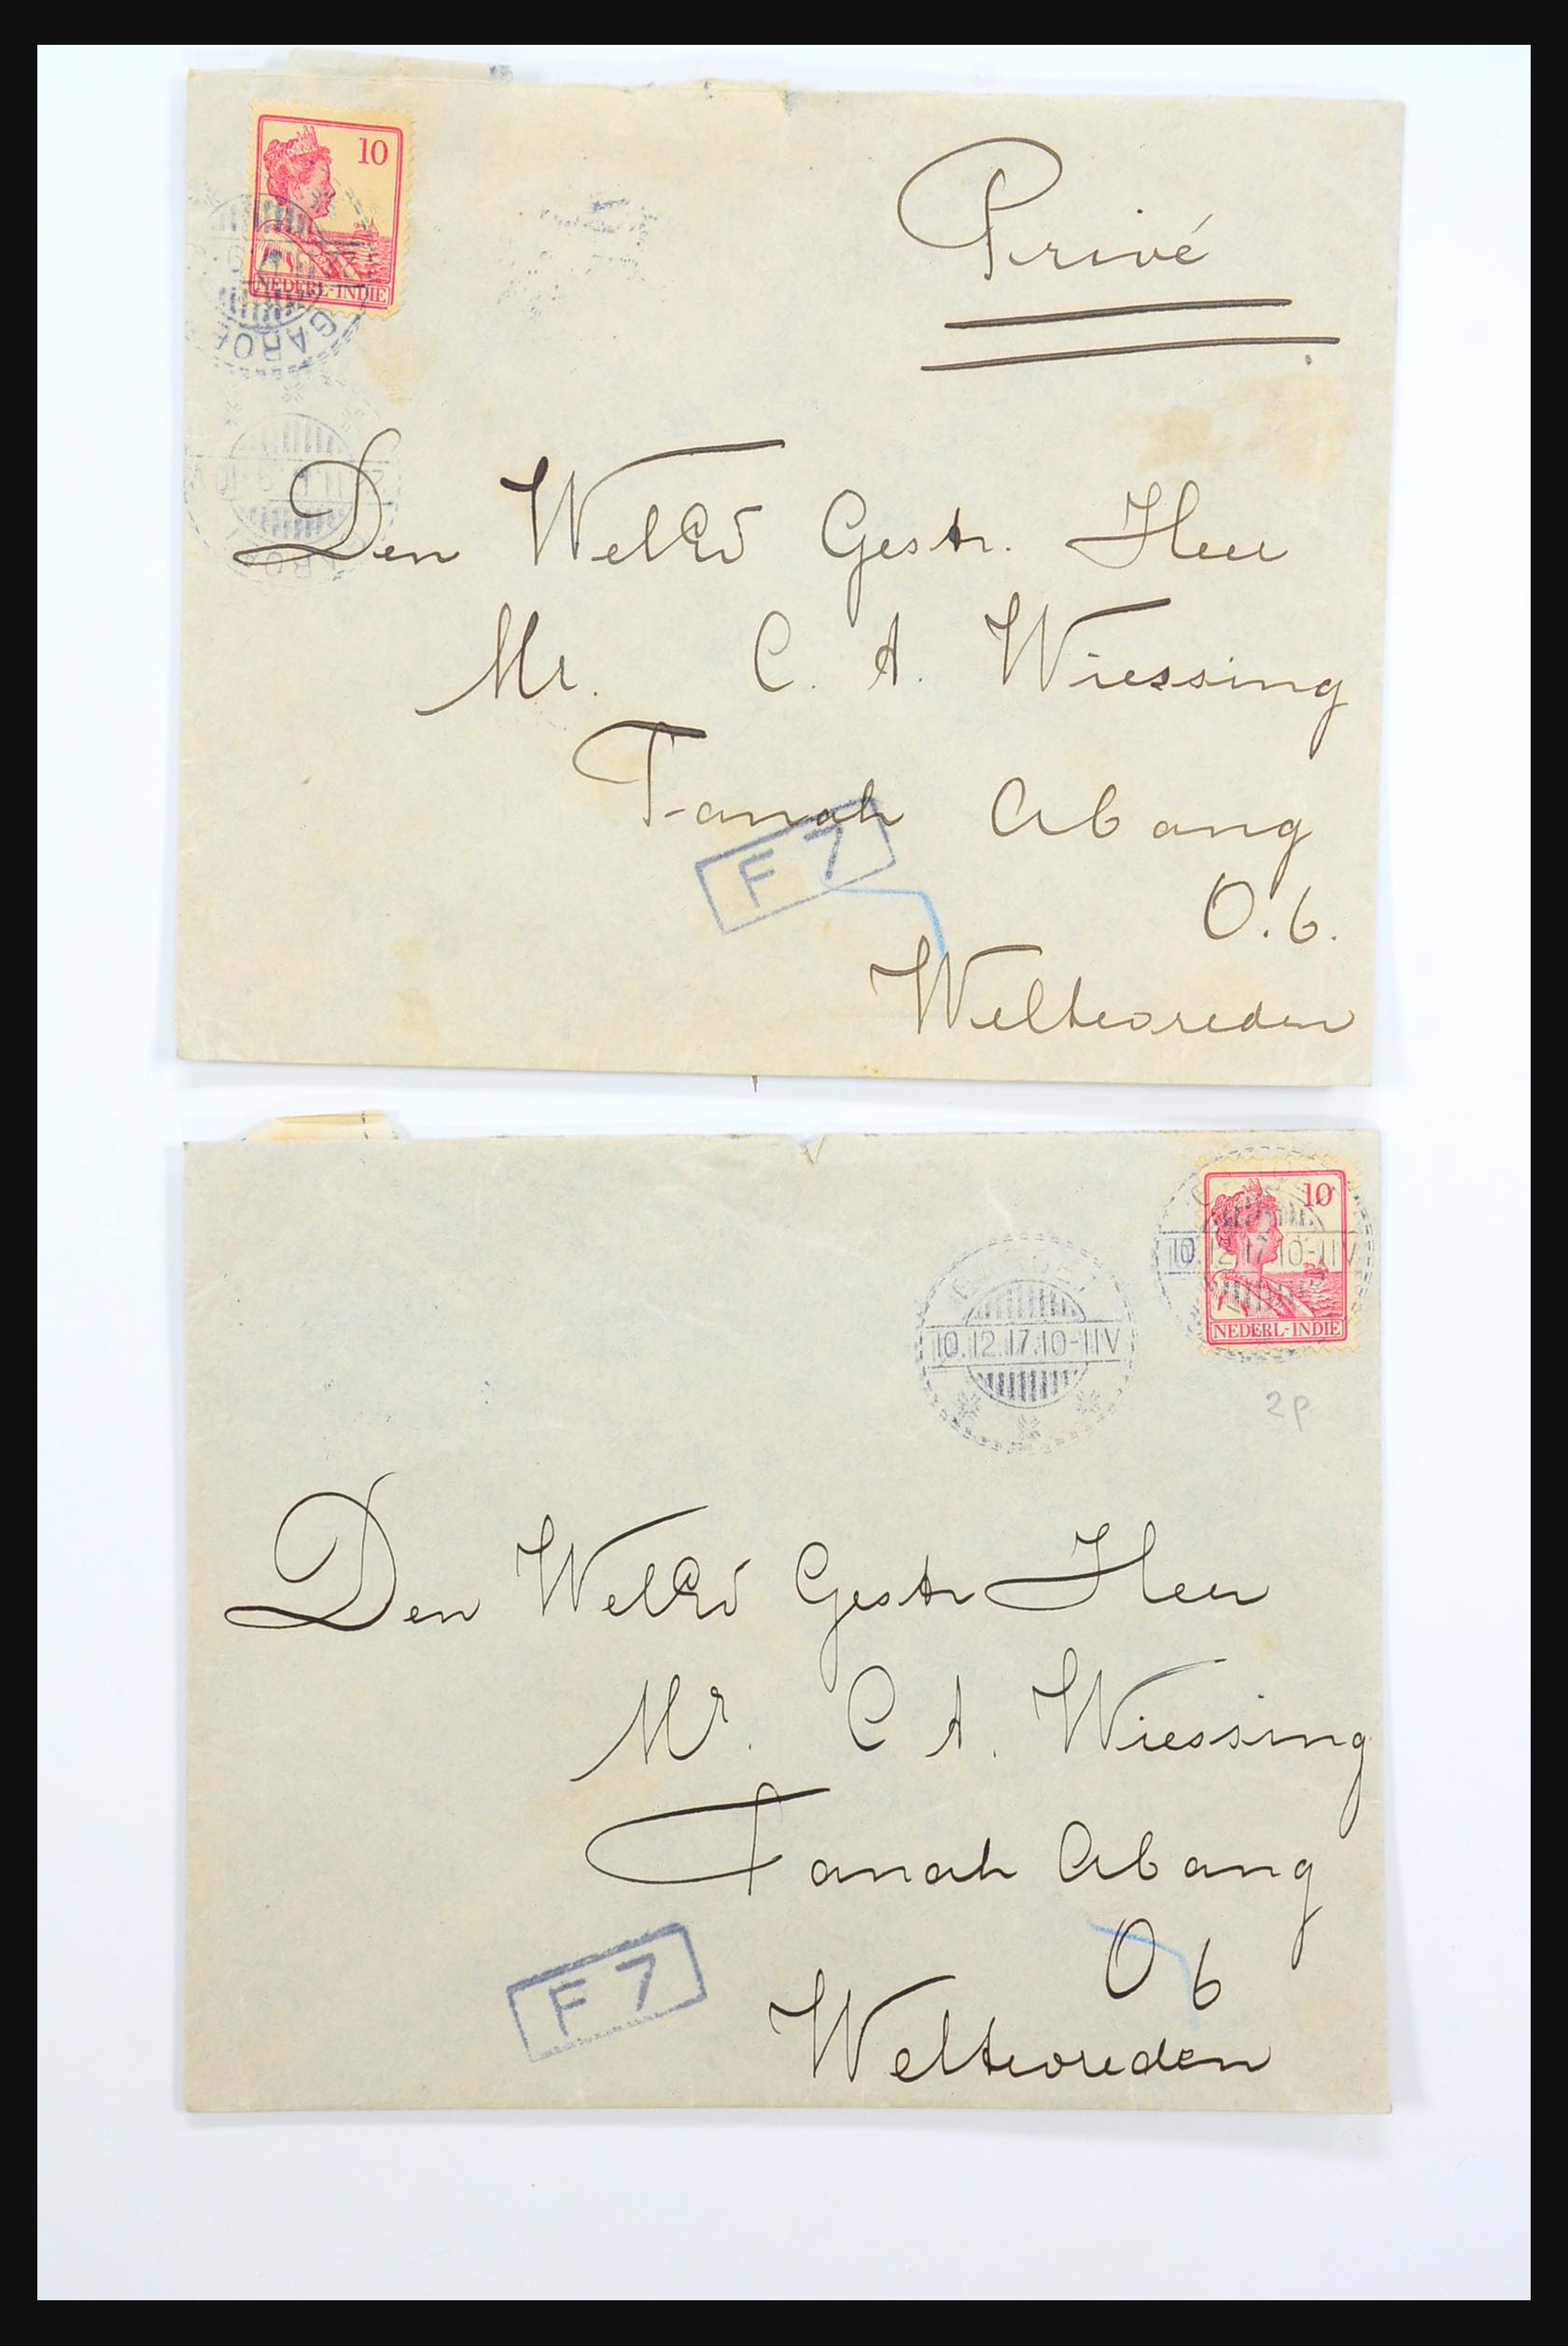 10
NEDERL-INDIE
Privé
Den WelEd Gestr. Heer
Mr. C. A. Wiessing
Tanah Abang
F 7
O.6.
Weltevreden
10
NEDERL-INDIE
10.12.17.10-11V
10.12.17.10-11V
2p
Den WelEd Gestr Heer
Mr. C A. Wiessing
Tanah Abang
O 6
F 7
Weltevreden